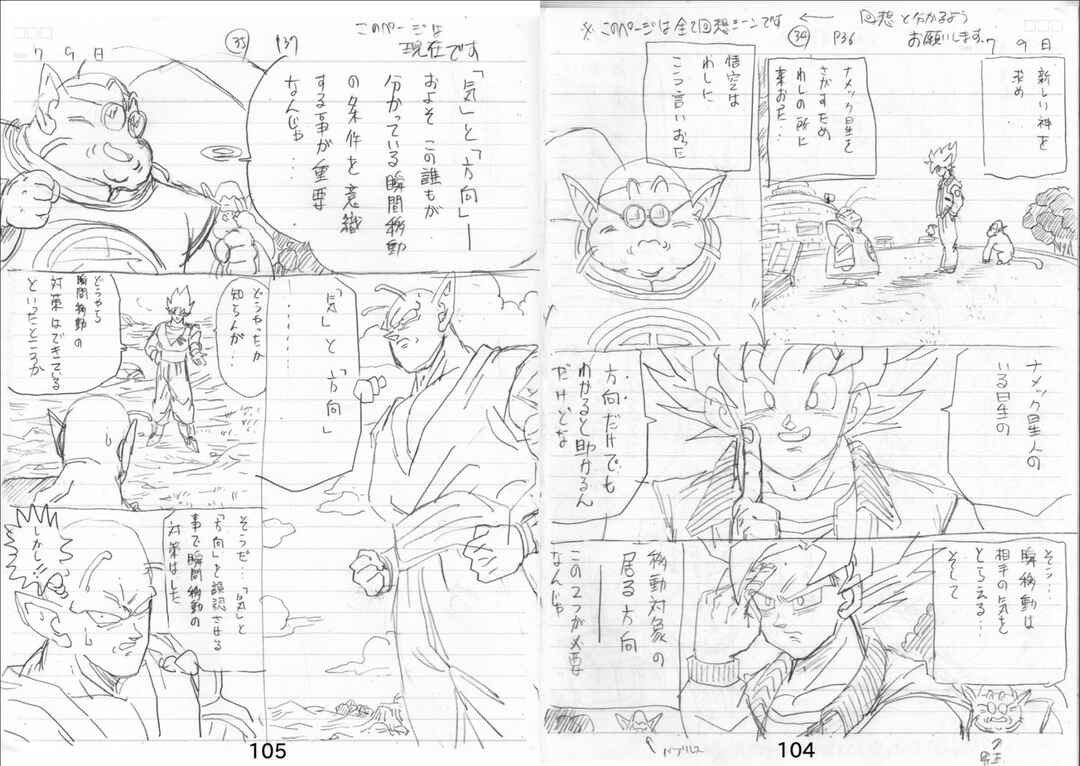 ※このページは全て回想シーンです
← 回想と分かるよう
お願いします。
34
P36
7 9 日
新しい神を
求め…
ナメック星を
さがすため
わしの所に
来おった…
悟空は
わしに
こう言いおった
ナメック星人の
いる星の
方向だけでも
わかると助かるん
だけどな
そう…
瞬間移動は
相手の気を
とらえる…
そして
移動対象の
居る方向
この2つが必要
なんじゃ
バブルス
104
このページは
現在です
35
P37
7 9 日
「気」と「方向」―
およそこの誰もが
分かっている瞬間移動
の条件を意識
する事が重要
なんじゃ…
「気」と「方向」
…………
どうやったか
知らんが…
どうやら
瞬間移動の
対策はできている
といったところか
そうだ…「気」と
「方向」を誤認させる
事で瞬間移動の
対策はした
しかし!!
105